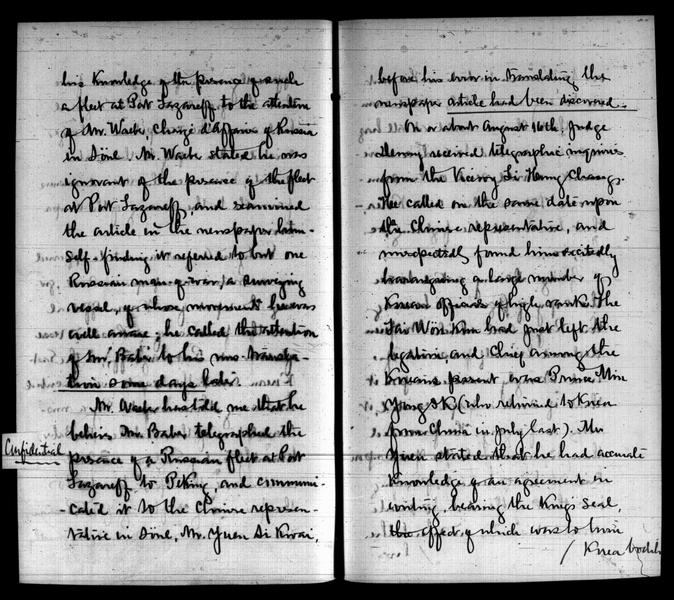 his knowledge of the presence of such
a fleet at Port Lazareff, to the attention
of Mr. Waeber, Chargé d'Affaires of Russia
in Söul. Mr. Waeber stated he was
ignorant of the presence of the fleet
at Port Lazareff, and examined
the article in the newspaper him-
self - finding it referred to but one
Russian man-of-war, a surveying
vessel, of whose movements he was
well aware; he called the attention
of Mr. Baber to his mis-transla-
tion some days later.
Mr. Waeber has told me that he
believes Mr. Baber telegraphed the
Confidential
presence of a Russian fleet at Port
Lazareff to Peking, and communi-
-cated it to the Chinese represen-
tative in Söul, Mr. Yuen Si Kwai,
before his error in translating the
newspaper article had been discovered.
On or about August 16th, Judge
Denny received telegraphic inquiries
from the Viceroy Li Hung Chang.
He called on the same date upon
the Chinese representative, and
unexpectedly found him excitedly
haranguing a large number of
Korean officials of high rank. The
Tai Won Kun had just left the
legation and Chief among the
Koreans present were Prince Min
Yong Ik (who returned to Korea
from China in July last). Mr
Yuen stated that he had accurate
knowledge of an agreement in
writing, bearing the King's Seal,
the effect of which was to turn
/ Korea bodily